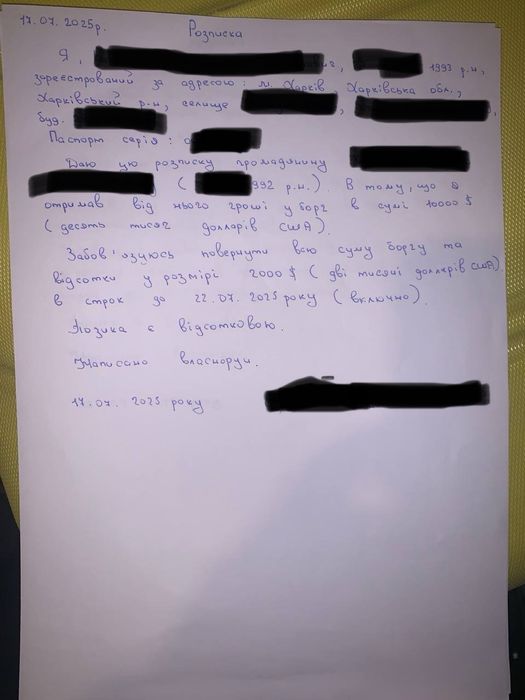 17.07.2025р.
Розписка
Я, 1993 р.н,
зареєстрований за адресою: м. Харків Харківська обл.,
Харківський р-н, селище ,
буд.
Паспорт серія:
Даю цю розписку громадянину
( 992 р.н.). В тому, що я
отримав від нього гроші у борг в сумі 10000 $
(десять тисяч долларів США).
Забов'язуюсь повернути всю суму боргу та
відсотки у розмірі 2000 $ (дві тисячі долларів США)
в строк до 22.07.2025 року (включно).
Позика є відсотковою.
Написано власноруч.
17.07.2025 року